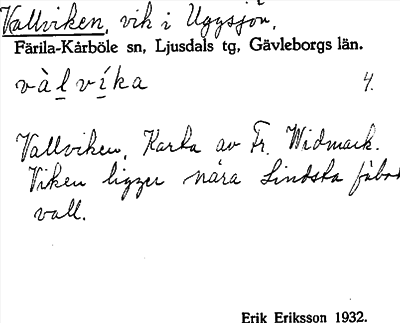 Vallviken, vik i Uggsjön,
Färila-Kårböle sn, Ljusdals tg, Gävleborgs län.
vàl̲ví̲ka 4.
Vallviken, Karta av Fr. Widmark.
Viken ligger nära Lindsta fäbod
vall.
Erik Eriksson 1932.